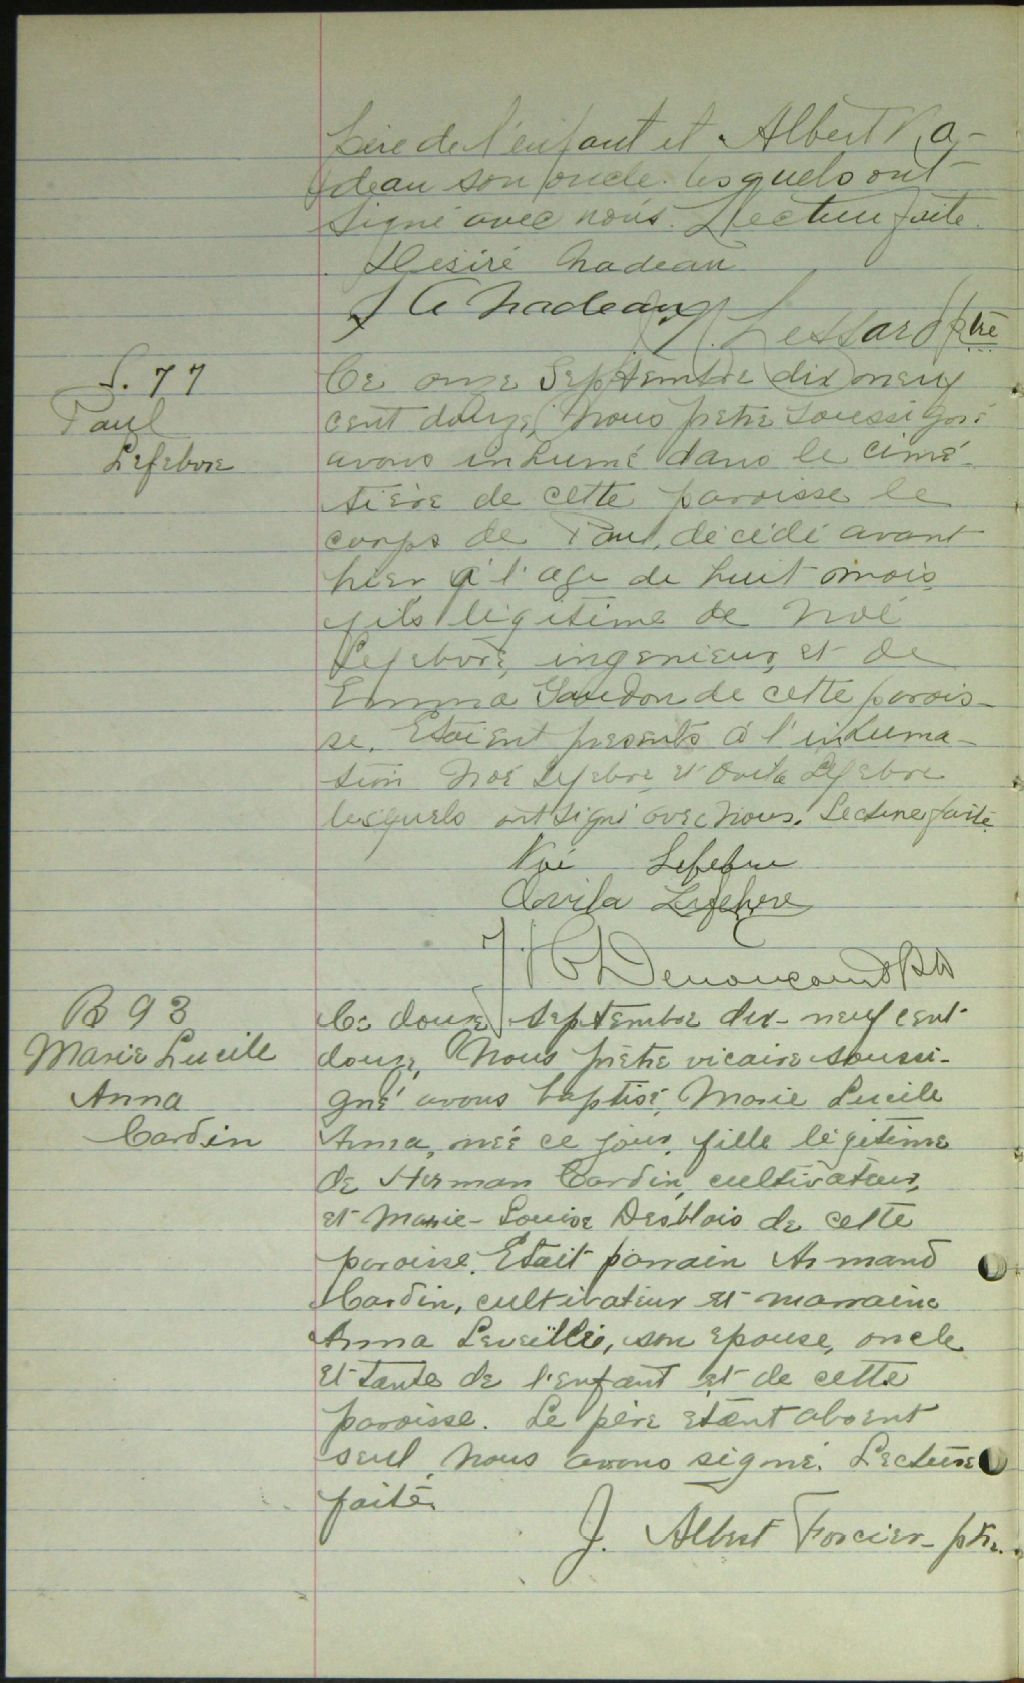 père de l'enfant et Albert Na-
deau son oncle lesquels ont
signé avec nous. Lecture faite.
Désiré Nadeau
J A Nadeau
Lessard ptre
S. 77
Paul
Lefebvre
Ce onze Septembre dix neuf
cent douze, Nous prêtre soussigné
avons inhumé dans le cimé-
tière de cette paroisse le
corps de Paul, décédé avant
hier, à l'age de huit mois,
fils légitime de Noé
Lefebvre, ingenieur, et de
Emma de cette parois-
se. Etaient presents à l'inhuma-
tion Noé Lefebvre et Ovila Lefebvre
lesquels ont signé avec nous. Lecture faite.
Noé Lefebvre
Ovila Lefebvre
B 93
Marie Lucile
Anna
Cardin
Ce douze Septembre dix-neuf cent
douze, Nous prêtre vicaire soussi-
gné avons baptisé, Marie Lucile
Anna, née ce jour, fille légitime
de Herman Cardin, cultivateur,
et Marie-Louise Desblois de cette
paroisse. Etait parrain Armand
Cardin, cultivateur et marraine
Anna Leveillé, son epouse, oncle
et tante de l'enfant et de cette
paroisse. Le père etant absent
seul nous avons signé. Lecture
faite.
J. Albert Forcier ptr.